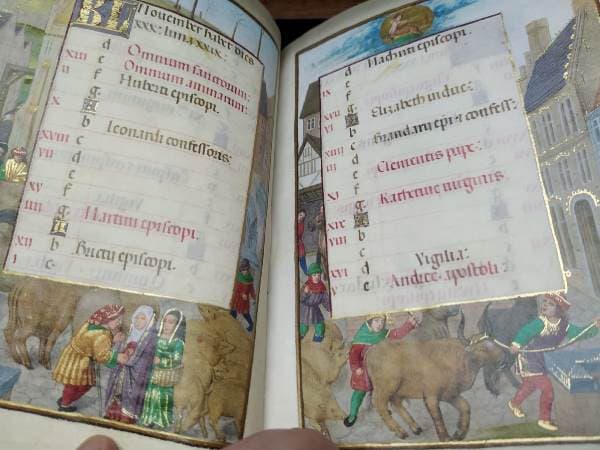 KL November habet dies
XXX: luna XXIX:
d Omnium sanctorum:
XIII e Omnium animarum:
II f Huberti episcopi.
g
X A
b Leonardi confessoris:
XVIII c
VII d
e
XV f
IIII g Martini episcopi.
A
XII b Bricii episcopi.
I c
d Machuti episcopi.
IX e
f
g Elizabeth vidue:
A
b confess:
c
d Clementis pape:
e
XI f Katherine virginis.
g
XIX A
VIII b
c
XVI d Vigilia:
V e Andree apostoli